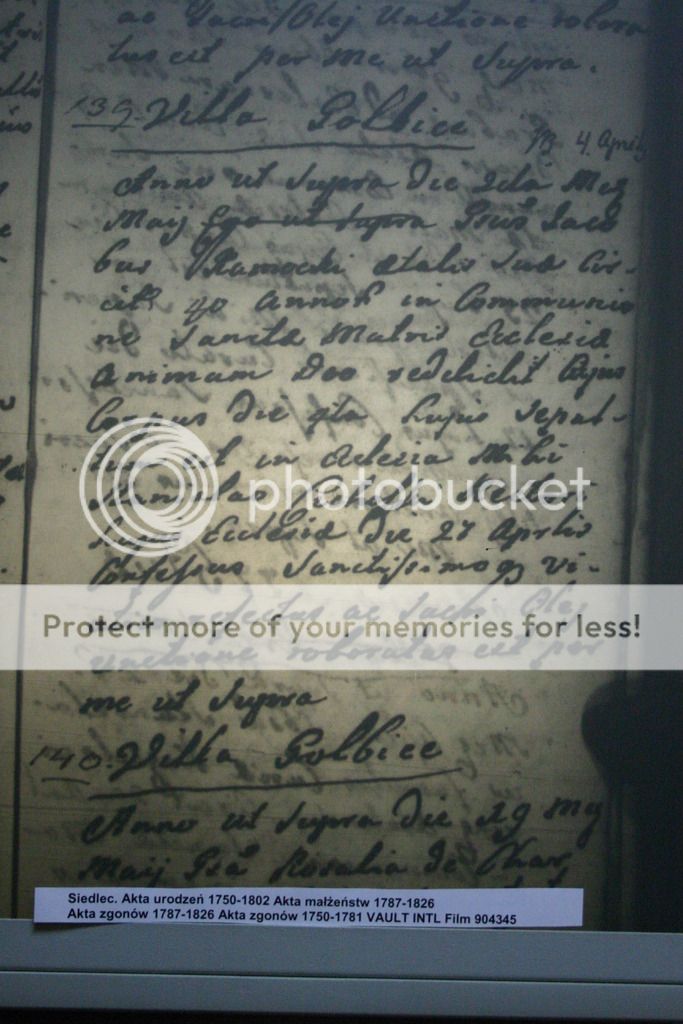 ac Sacri Olej Unctione robora
tus est per me ut Supra.
139. Villa Golbice
4 Aprilis
Anno ut Supra die 2da Msis
Maij Ego ut Supra Gsus Jaco
bus Ramocki Ætatis Suæ Cir-
cit. 40 Annor in Communio
ne Sanctæ Matris Ecclesiæ
Animam Deo reddidit Cujus
Corpus die 4ta hujus Sepul-
tum est in Mihi
Stanislao
Ecclesiæ Die 27 Aprilis
Confessus Sanctissimoq Vi-
refectus ac Sacri Olej
Unctione roboratus est per
me ut Supra
140. Villa Golbice
Anno ut Supra Die 29 Msis
Maij Gsa Rosalia de
photobucket
Protect more of your memories for less!
Siedlec. Akta urodzeń 1750-1802 Akta małżeństw 1787-1826
Akta zgonów 1787-1826 Akta zgonów 1750-1781 VAULT INTL Film 904345